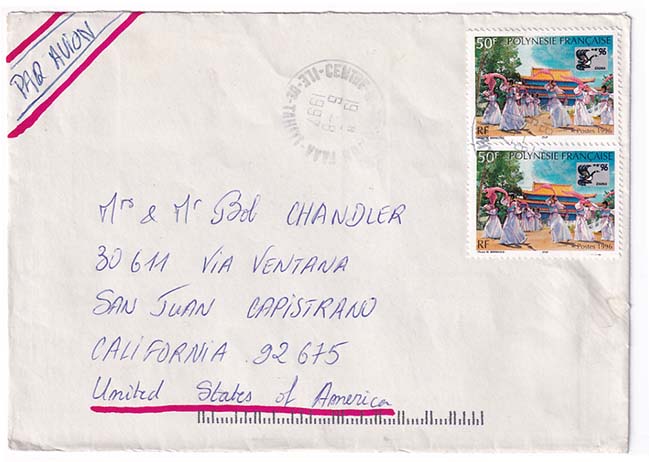 PAR AVION
50F POLYNÉSIE FRANÇAISE
96
RF Postes 1996
50F POLYNÉSIE FRANÇAISE
96
RF Postes 1996
1997
Mrs & Mr Bob CHANDLER
30 611 VIA VENTANA
SAN JUAN CAPISTRANO
CALIFORNIA 92 675
United States of America